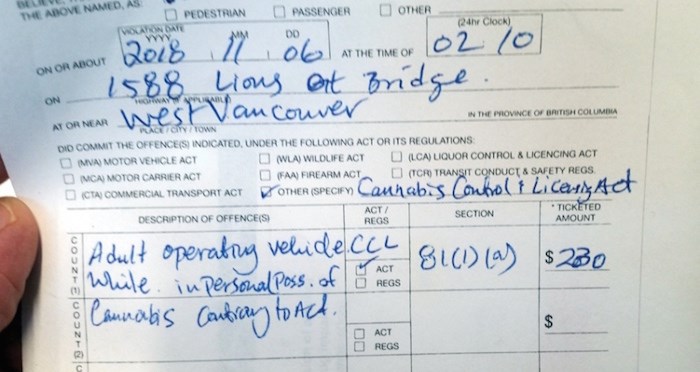 THE ABOVE NAMED, AS
PEDESTRIAN PASSENGER OTHER
VIOLATION DATE (24hr Clock)
YYYY MM DD
ON OR ABOUT 2018 11 06 AT THE TIME OF 02 10
ON 1588 Lions Gt Bridge.
HIGHWAY
AT OR NEAR West Vancouver IN THE PROVINCE OF BRITISH COLUMBIA
PLACE / CITY / TOWN
DID COMMIT THE OFFENCE(S) INDICATED, UNDER THE FOLLOWING ACT OR ITS REGULATIONS:
(MVA) MOTOR VEHICLE ACT (WLA) WILDLIFE ACT (LCA) LIQUOR CONTROL & LICENCING ACT
(MCA) MOTOR CARRIER ACT (FAA) FIREARM ACT (TCR) TRANSIT CONDUCT & SAFETY REGS.
(CTA) COMMERCIAL TRANSPORT ACT OTHER (SPECIFY) Cannabis Control & Licensing Act
DESCRIPTION OF OFFENCE(S) ACT / REGS SECTION * TICKETED AMOUNT
COUNT (1) Adult operating vehicle CCL 81(1)(a) $ 230
While in personal Poss. of ACT
REGS
COUNT (2) Cannabis contrary to Act. $
ACT
REGS
C